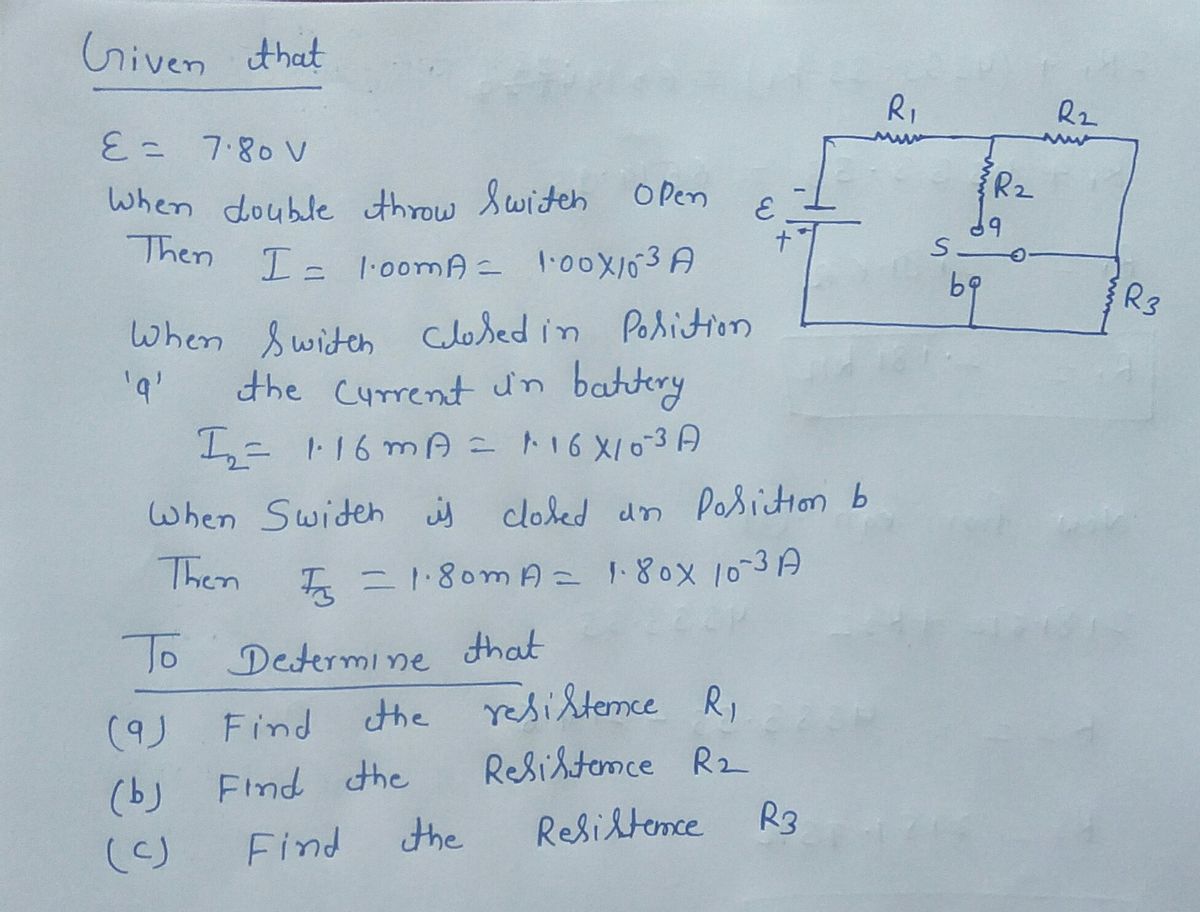 Given that
ε = 7.80 V
When double throw Switch open
Then I = 1.00mA = 1.00X10⁻³ A
When Switch closed in Position
'a' the current in battery
I₂ = 1.16 mA = 1.16 X10⁻³ A
When Switch is closed in Position b
Then I₃ = 1.80mA = 1.80X 10⁻³ A
To Determine that
(a) Find the resistence R₁
(b) Find the Resistence R2
(c) Find the Resistence R3
R₁
R2
R2
ε
-
+
a
S
b
R3